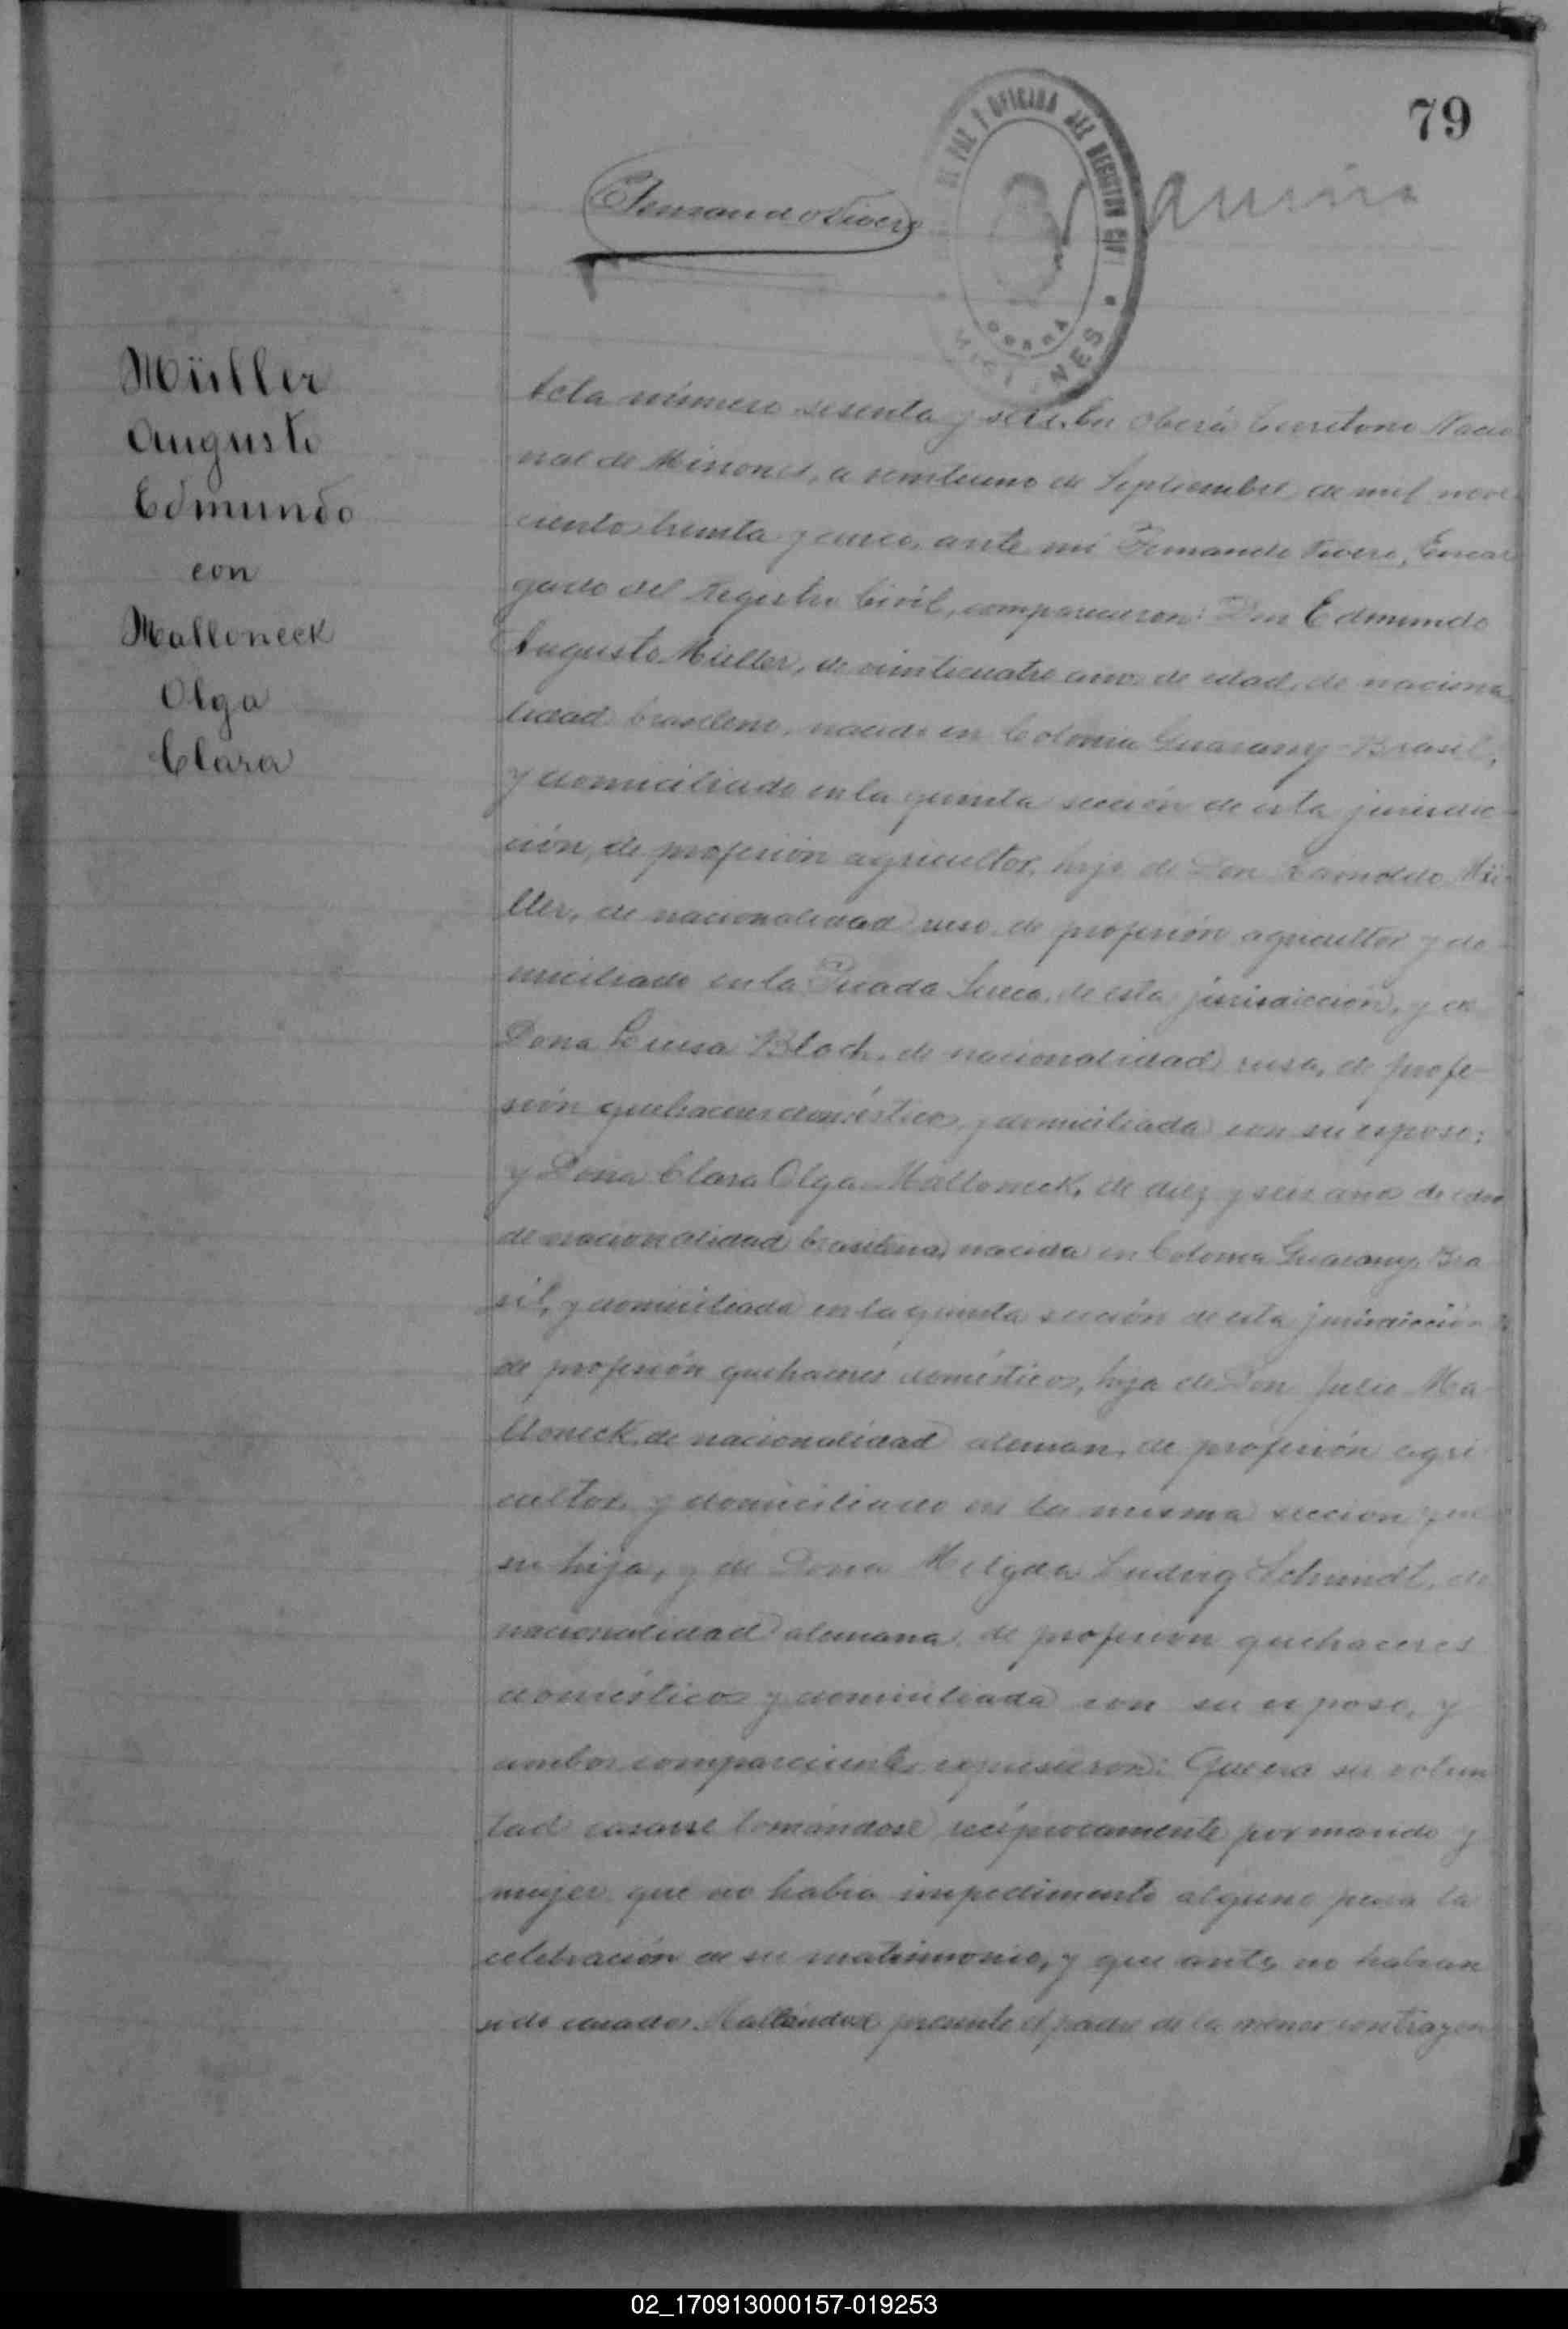 79
Fernando Vivero
DE PAZ Y OFICINA DEL REGISTRO CIVIL
OBERA
MISIONES
Müller
Augusto
Edmundo
con
Malloneck
Olga
Clara
Acta número sesenta y seis. En Oberá Territorio Nacio
nal de Misiones, a veintiuno de Septiembre de mil nove-
cientos treinta y cinco, ante mí Fernando Vivero, Encar
gado del Registro Civil, comparecieron: Don Edmundo
Augusto Müller, de veinticuatro años de edad, de naciona
lidad brasileno, nacido en Colonia Guarany-Brasil,
y domiciliado en la quinta sección de esta jurisdic-
ción, de profesión agricultor, hijo de Don Mü-
ller, de nacionalidad ruso, de profesión agricultor y do-
miciliado en la Picada Sueca, de esta jurisdicción, y de
Dona Luisa Bloch, de nacionalidad rusa, de profe-
sión quehaceres domésticos, y domiciliada con su esposo;
y Dona Clara Olga Malloneck, de diez y seis anos de edad
de nacionalidad brasilena, nacida en Colonia Guarany, Bra
sil, y domiciliada en la quinta sección de esta jurisdicción
de profesión quehaceres domésticos, hija de Don Julio Ma-
lloneck, de nacionalidad aleman, de profesión agri
cultor, y domiciliado en la misma seccion que
su hija, y de Dona Ludvig Schmidt, de
nacionalidad alemana, de profesion quehaceres
domésticos y domiciliada con su esposo, y
ambos comparecientes expusieron: Que era su volun
tad casarse tomándose recíprocamente por marido y
mujer que no habia impedimento alguno para la
celebración de su matrimonio, y que antes no habian
sido casados. Hallándose presente el padre de la menor contrayen
02_170913000157-019253